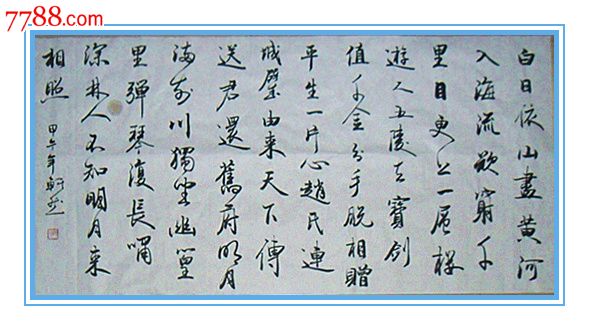 7788.com
白日依山盡黄河
入海流欲窮千
里目更上一层楼
遊人五陵去寶劍
值千金分手脱相贈
平生一片心趙氏連
城璧由来天下傳
送君還舊府明月
满前川獨坐幽篁
里彈琴復長嘯
深林人不知明月来
相照
甲午年軒